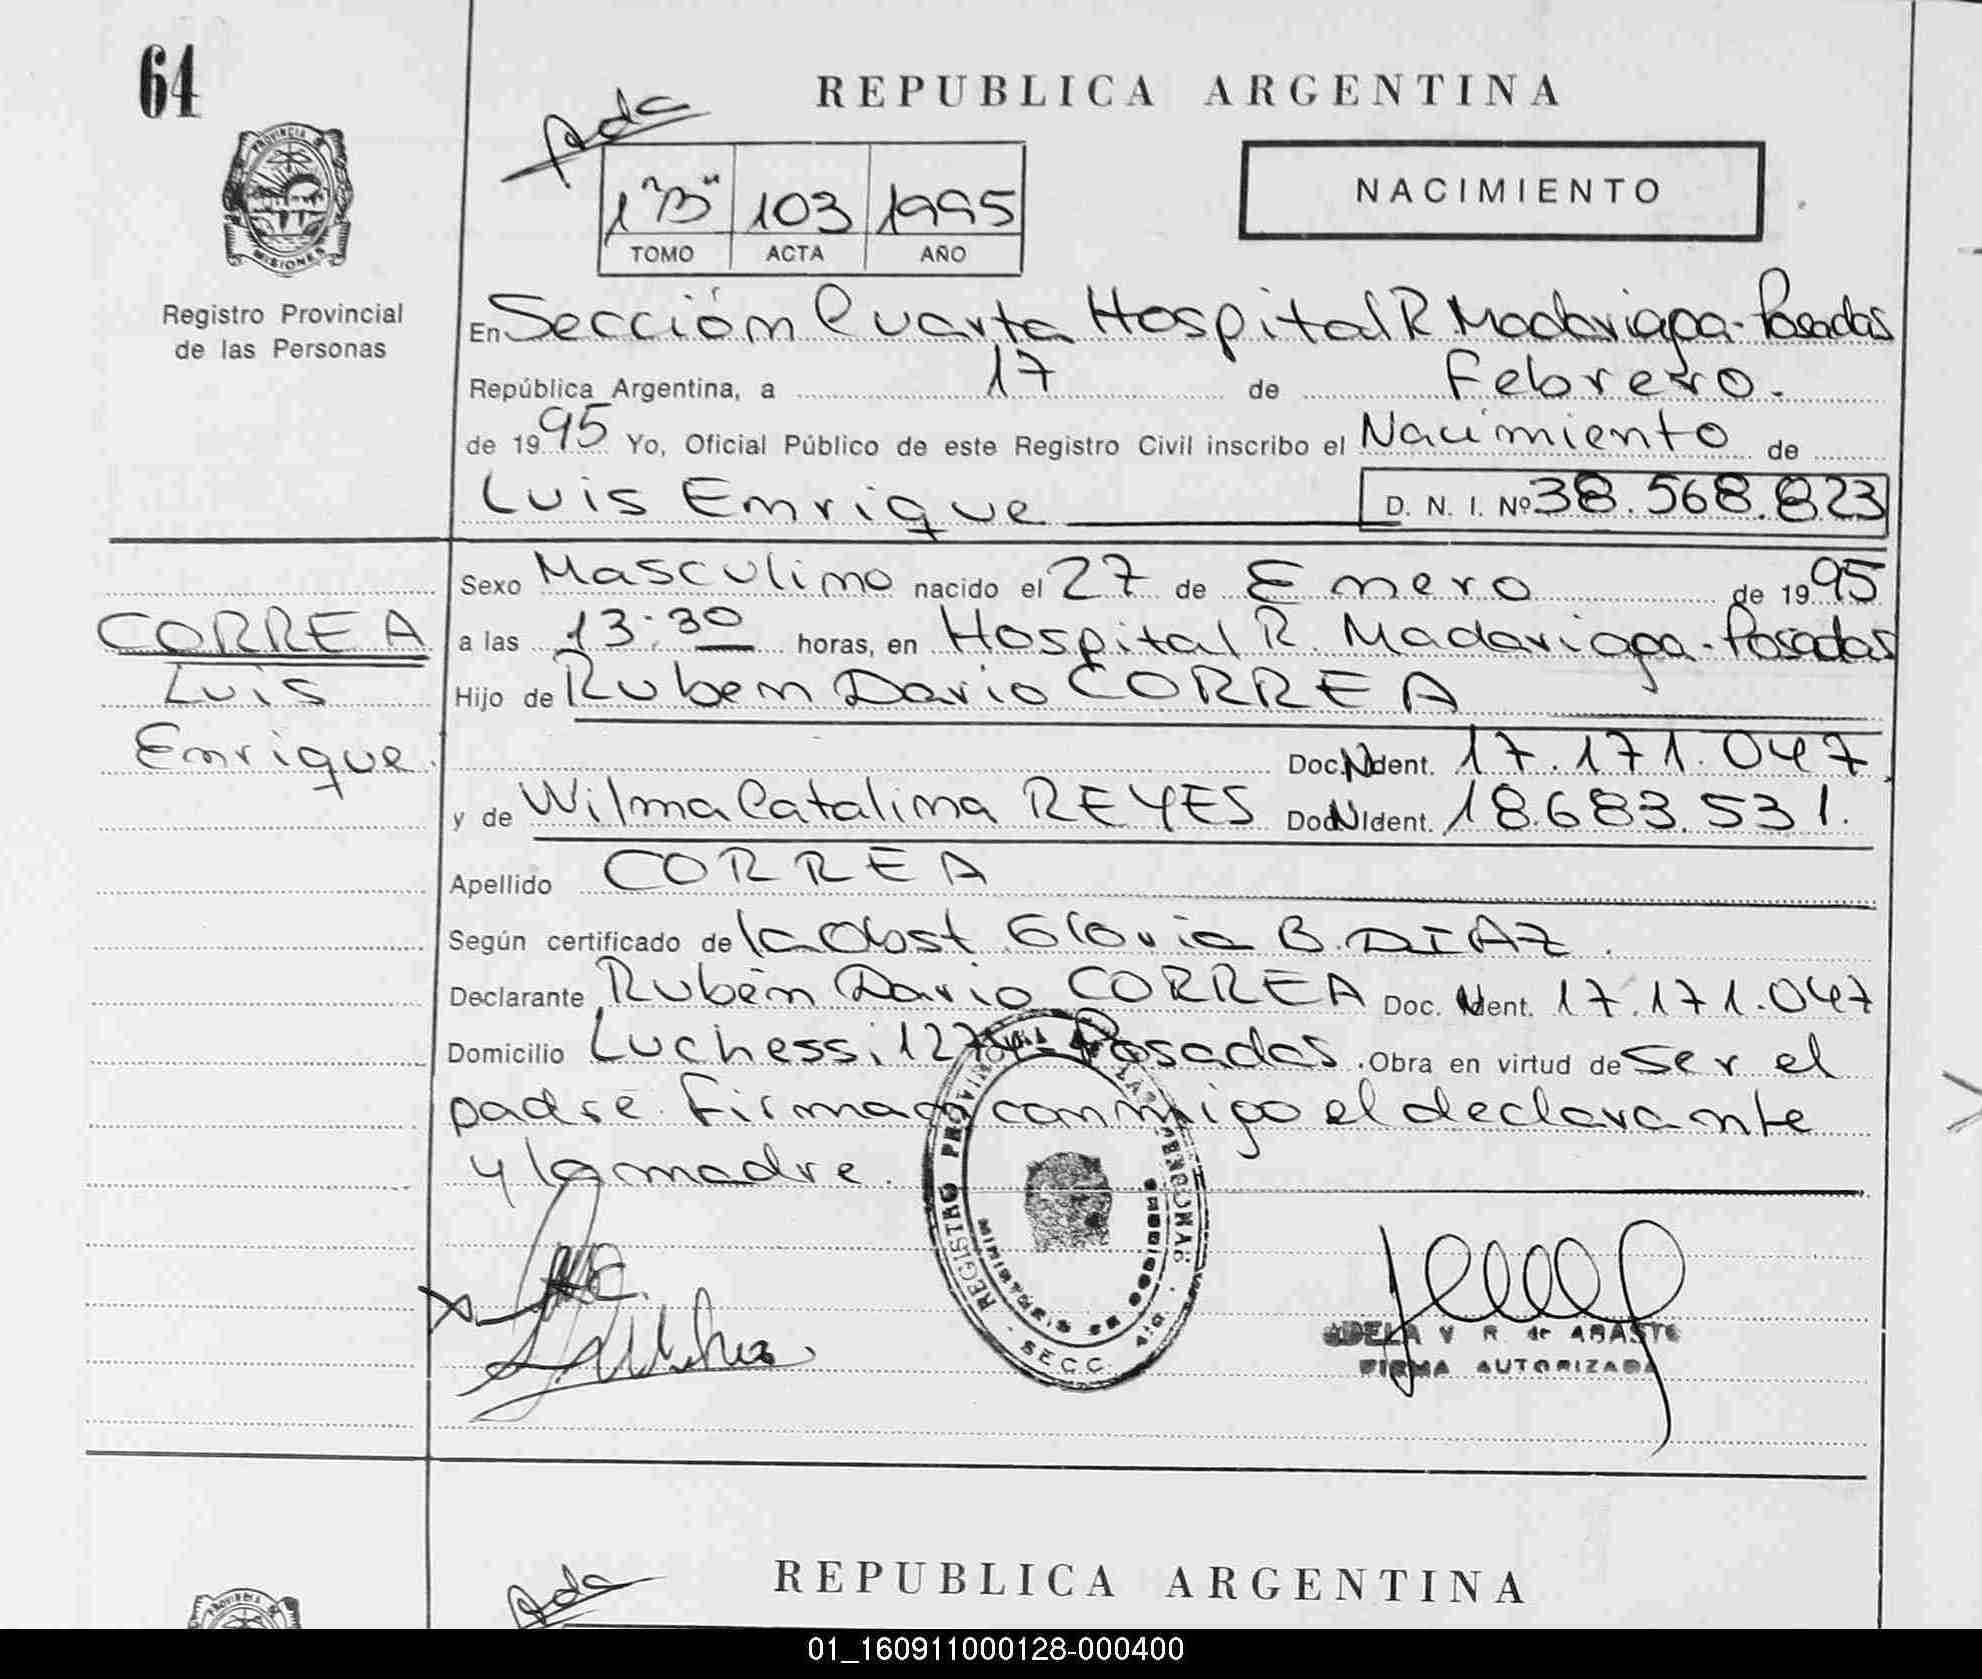 64
REPUBLICA ARGENTINA
Ada
PROVINCIA
MISIONES
1 "B" 103 1995
TOMO ACTA AÑO
NACIMIENTO
Registro Provincial
de las Personas
En Sección Cuarta Hospital R. Madariaga - Posadas
República Argentina, a 17 de Febrero.
de 1995 Yo, Oficial Público de este Registro Civil inscribo el Nacimiento de
Luis Enrique D. N. I. Nº 38.568.823
Sexo Masculino nacido el 27 de Enero de 1995
CORREA
Luis
Enrique.
a las 13:30 horas, en Hospital R. Madariaga - Posadas
Hijo de Ruben Dario CORREA
Doc. Ident. 17.171.047.
y de Wilma Catalina REYES Doc Ident. 18.683.531.
Apellido CORREA
Según certificado de la Obst Gloria B. DIAZ.
Declarante Rubén Dario CORREA Doc. Ident. 17.171.047
Domicilio Luchessi 1274 - Posadas. Obra en virtud de ser el
padre. Firman conmigo el declarante
y la madre.
REGISTRO PROVINCIAL DE LAS PERSONAS
MINISTERIO DE GOBIERNO
SECC. 4ta
ADELA V R. de ABASTO
FIRMA AUTORIZADA
Ada
REPUBLICA ARGENTINA
PROVINCIA
01_160911000128-000400